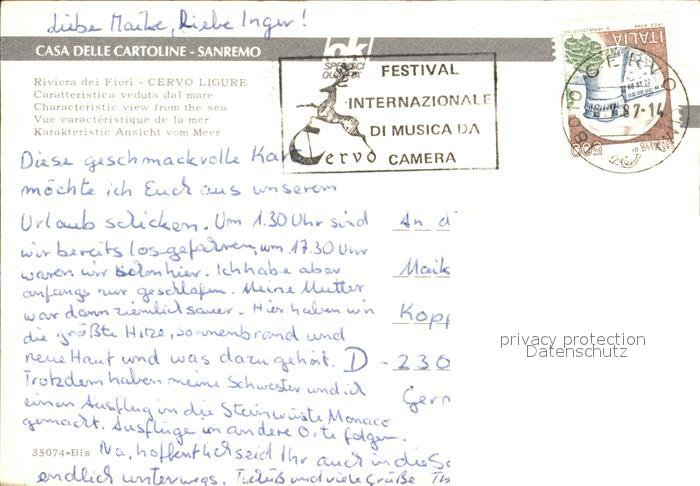 Liebe Maike, Liebe Inger!
CASA DELLE CARTOLINE - SANREMO
Riviera dei Fiori - CERVO LIGURE
Caratteristica veduta dal mare
Characteristic view from the sea
Vue caractéristique de la mer
Karakteristic Ansicht vom Meer
FESTIVAL
INTERNAZIONALE
DI MUSICA DA
Cervo CAMERA
ITALIA
CERVO
87-14
Diese geschmackvolle Karte
möchte ich Euch aus unserem
Urlaub schicken. Um 1.30 Uhr sind
wir bereits losgefahren, um 17.30 Uhr
waren wir schon hier. Ich habe aber
anfangs nur geschlafen. Meine Mutter
war dann ziemlich sauer. Hier haben wir
die größte Hitze, Sonnenbrand und
neue Haut und was dazu gehört.
Trotzdem haben meine Schwester und ich
einen Ausflug in die Steinwüste Monaco
gemacht. Ausflüge in andere Orte folgen.
Na, hoffentlich seid Ihr auch in die
endlich unterwegs. Tschüß und viele Grüße
35074-Bis
An d
Maik
Kopp
D - 230
privacy protection
Datenschutz